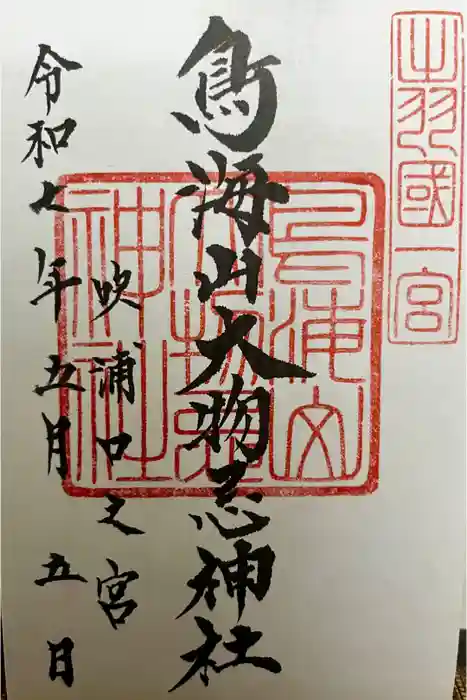 出羽國一宮
鳥海山
大物忌
神社
鳥海山大物忌神社
吹浦口之宮
令和七年五月五日